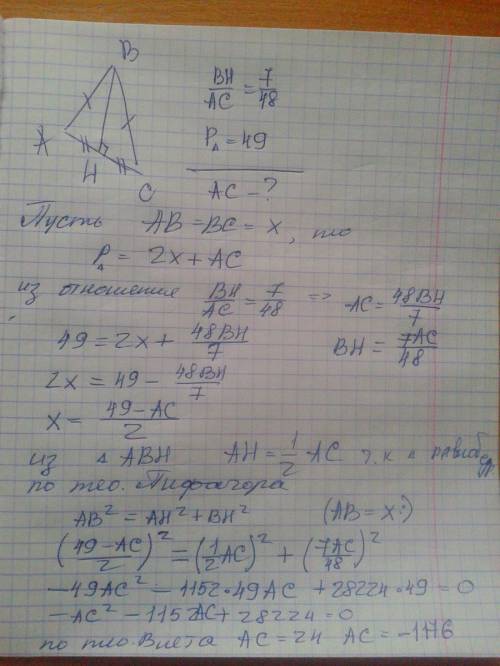 B
BH/AC = 7/48
A
P△ = 49
H
C
AC - ?
Пусть AB = BC = x, то
P△ = 2x + AC
из отношения BH/AC = 7/48 => AC = 48BH/7
49 = 2x + 48BH/7
BH = 7AC/48
2x = 49 - 48BH/7
x = (49-AC)/2
из △ ABH AH = 1/2 AC т.к △ равнобед
по тео. Пифагора
AB² = AH² + BH² (AB = x :)
((49-AC)/2)² = (1/2 AC)² + (7AC/48)²
-49AC² - 1152·49AC + 28224·49 = 0
-AC² - 1152AC + 28224 = 0
по тео. Виета AC = 24 AC = -1176